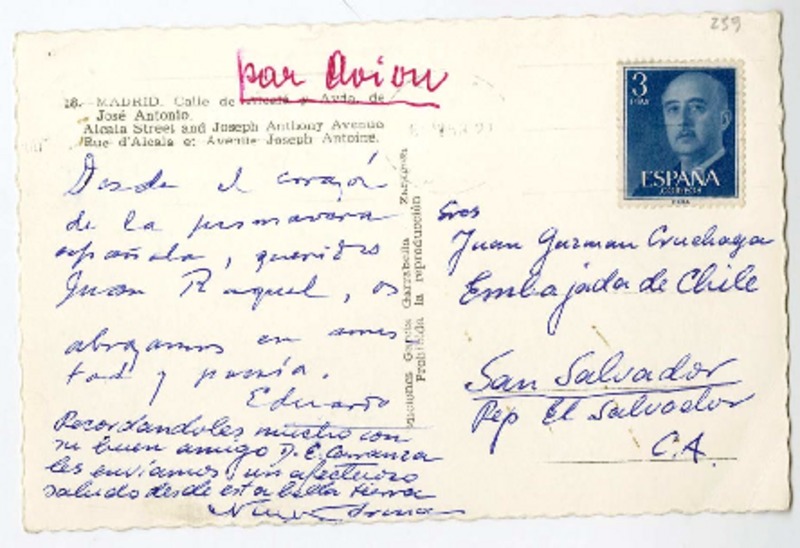 259
par Avion
18.- MADRID. Calle de Alcalá y Avda. de
José Antonio.
Alcala Street and Joseph Anthony Avenue
Rue d'Alcala et Avenue Joseph Antoine.
3
PTAS
ESPAÑA
CORREOS
Desde el corazón
de la primavera
española, queridos
Juan Raquel, os
abrazamos en amis
tad y poesía.
Eduardo
Recordandoles mucho con
su buen amigo D. E. Carranza
les enviamos un afectuoso
saludo desde esta bella tierra
Ediciones García Garrabella Zaragoza
Prohibida la reproducción
Sres
Juan Guzman Cruchaga
Embajada de Chile
San Salvador
Rep El Salvador
C.A.